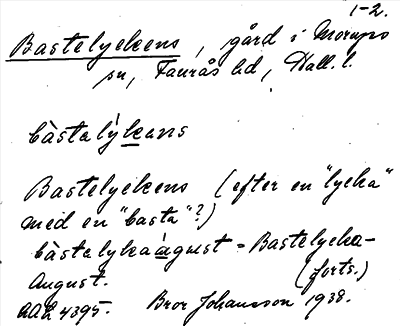 1-2.
Bastelyckens, gård i Morups
sn, Faurås hd, Hall. l.
bàstalýkans
Bastelyckens (efter en "lycka"
med en "basta"?)
bàstalykaàgust = Bastelycka-
August. (forts.)
AAL 4395. Bror Johansson 1938.